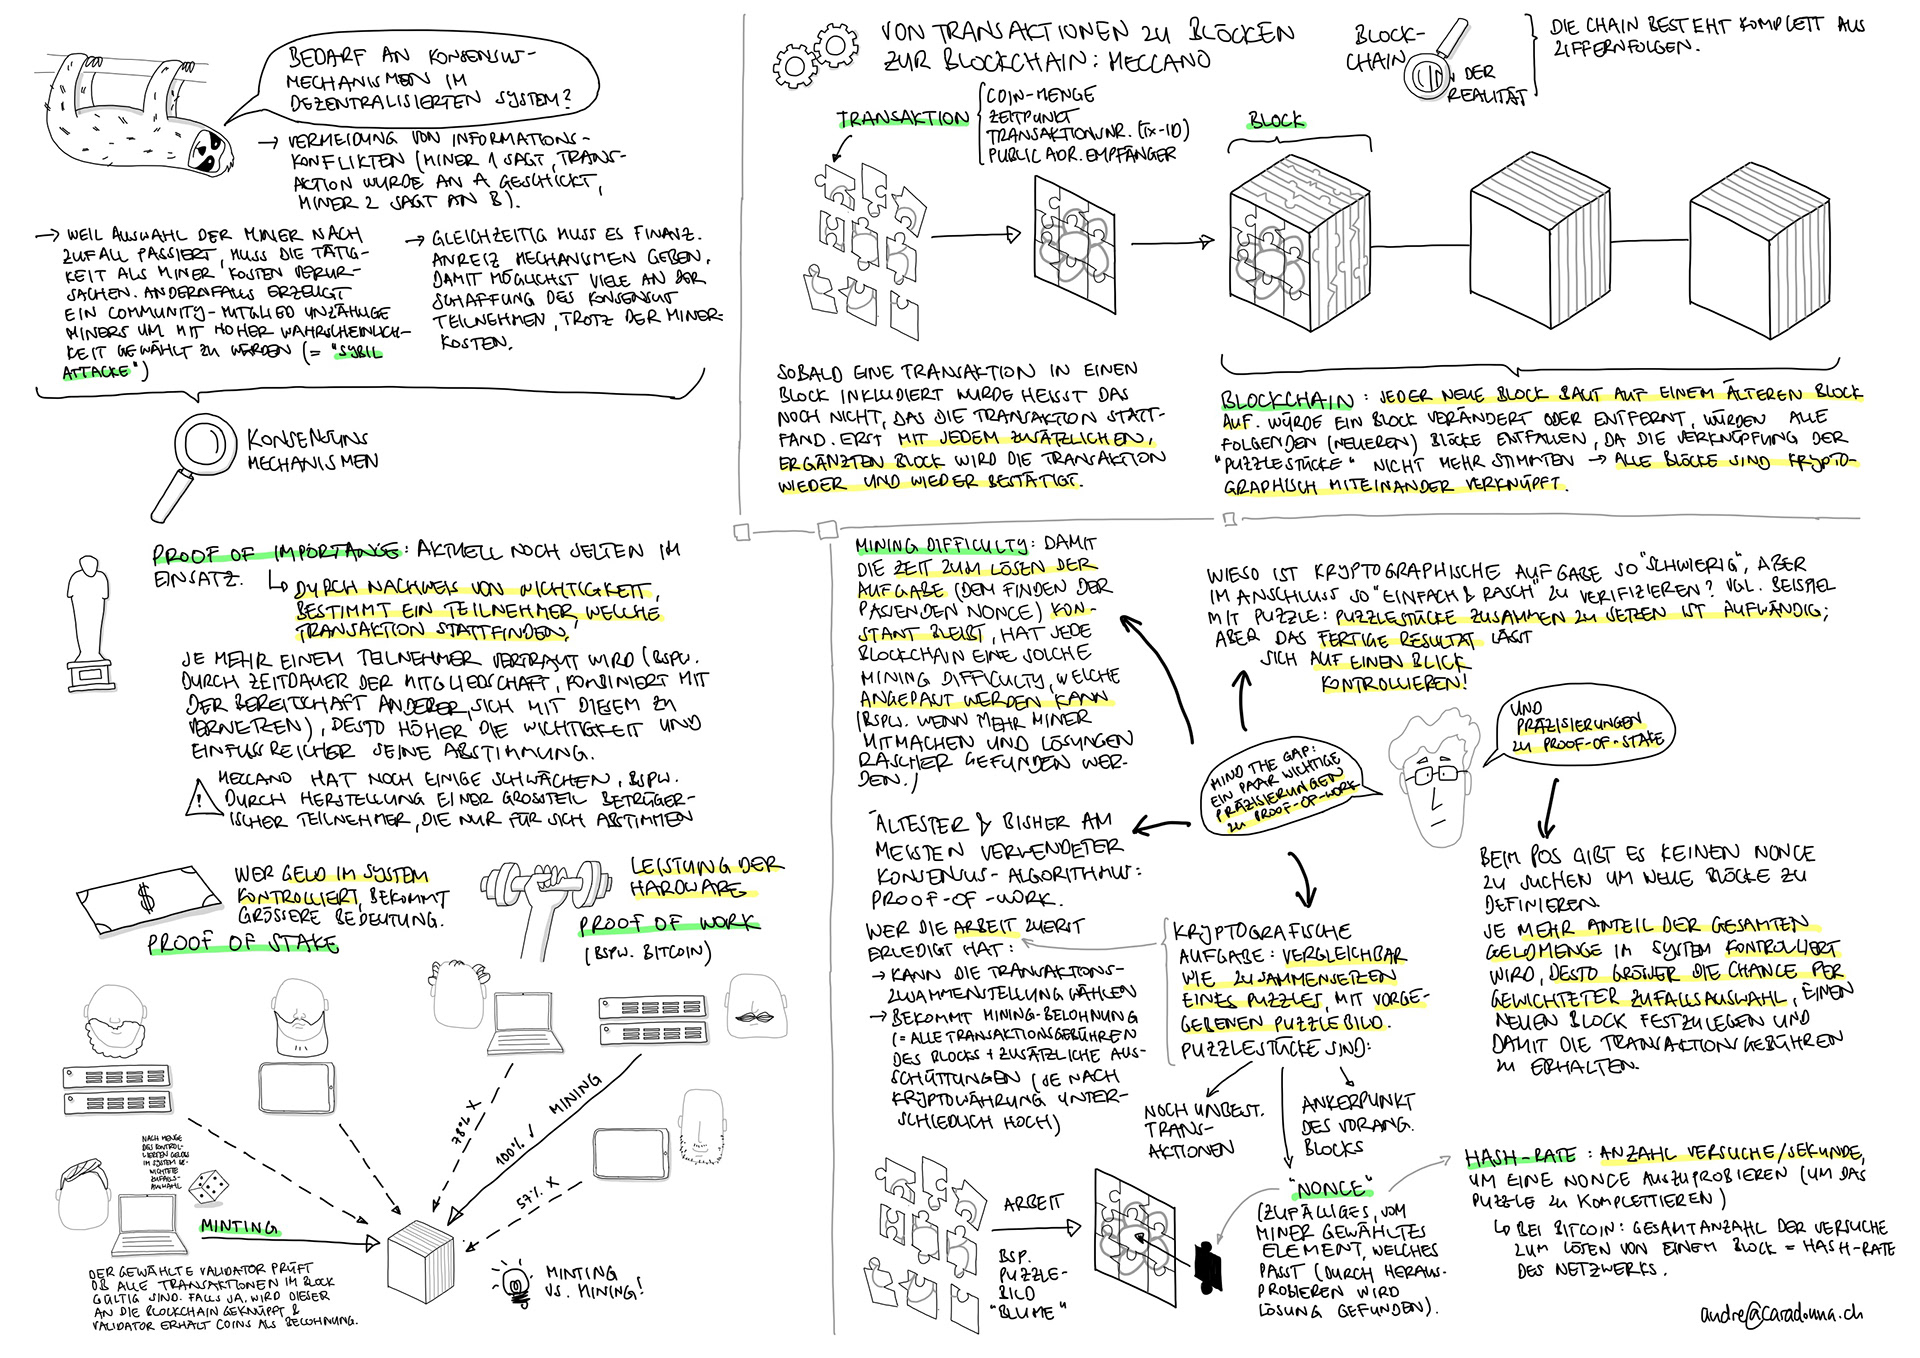 BEDARF AN KONSENSUS-
MECHANISMEN IM
DEZENTRALISIERTEN SYSTEM?
→ VERMEIDUNG VON INFORMATIONS-
KONFLIKTEN (MINER 1 SAGT, TRANS-
AKTION WURDE AN A GESCHICKT,
MINER 2 SAGT AN B).
→ WEIL AUSWAHL DER MINER NACH
ZUFALL PASSIERT, MUSS DIE TÄTIG-
KEIT ALS MINER KOSTEN VERUR-
SACHEN. ANDERNFALLS ERZEUGT
EIN COMMUNITY-MITGLIED UNZÄHLIGE
MINERS UM MIT HOHER WAHRSCHEINLICH-
KEIT GEWÄHLT ZU WERDEN (= "SYBIL
ATTACKE")
→ GLEICHZEITIG MUSS ES FINANZ.
ANREIZ MECHANISMEN GEBEN,
DAMIT MÖGLICHST VIELE AN DER
SCHAFFUNG DES KONSENSUS
TEILNEHMEN, TROTZ DER MINER-
KOSTEN.
KONSENSUNS
MECHANISMEN
PROOF OF IMPORTANCE: AKTUELL NOCH SELTEN IM
EINSATZ.
↳ DURCH NACHWEIS VON WICHTIGKEIT,
BESTIMMT EIN TEILNEHMER, WELCHE
TRANSAKTION STATTFINDEN.
JE MEHR EINEM TEILNEHMER VERTRAUT WIRD (BSPW.
DURCH ZEITDAUER DER MITGLIEDSCHAFT, KOMBINIERT MIT
DER BEREITSCHAFT ANDERER, SICH MIT DIESEM ZU
VERNETZEN), DESTO HÖHER DIE WICHTIGKEIT UND
EINFUSSREICHER SEINE ABSTIMMUNG.
! MECCANO HAT NOCH EINIGE SCHWÄCHEN, BSPW.
DURCH HERSTELLUNG EINER GROSSTEIL BETRÜGER-
ISCHER TEILNEHMER, DIE NUR FÜR SICH ABSTIMMEN
$
WER GELD IM SYSTEM
KONTROLLIERT, BEKOMMT
GRÖSSERE BEDEUTUNG.
PROOF OF STAKE
LEISTUNG DER
HARDWARE
PROOF OF WORK
(BSPW. BITCOIN)
NACH MENGE
DES KONTROL-
LIERTEN GELDS
IM SYSTEM GE-
WICHTETE
ZUFALLS-
AUSWAHL
MINTING
78% X
100% ✓
MINING
57% X
DER GEWÄHLTE VALIDATOR PRÜFT
OB ALLE TRANSAKTIONEN IM BLOCK
GÜLTIG SIND. FALLS JA, WIRD DIESER
AN DIE BLOCKCHAIN GEKNÜPFT &
VALIDATOR ERHÄLT COINS ALS BELOHNUNG.
MINTING
VS. MINING!
VON TRANSAKTIONEN ZU BLÖCKEN
ZUR BLOCKCHAIN: MECCANO
BLOCK-
CHAIN
IN DER
REALITÄT
DIE CHAIN BESTEHT KOMPLETT AUS
ZIFFERNFOLGEN.
TRANSAKTION
COIN-MENGE
ZEITPUNKT
TRANSAKTIONSNR. (TX-ID)
PUBLIC ADR. EMPFÄNGER
BLOCK
SOBALD EINE TRANSAKTION IN EINEN
BLOCK INKLUDIERT WURDE HEISST DAS
NOCH NICHT, DAS DIE TRANSAKTION STATT-
FAND. ERST MIT JEDEM ZUSÄTZLICHEN,
ERGÄNZTEN BLOCK WIRD DIE TRANSAKTION
WIEDER UND WIEDER BESTÄTIGT.
BLOCKCHAIN: JEDER NEUE BLOCK BAUT AUF EINEM ÄLTEREN BLOCK
AUF. WÜRDE EIN BLOCK VERÄNDERT ODER ENTFERNT, WÜRDEN ALLE
FOLGENDEN (NEUEREN) BLÖCKE ENTFALLEN, DA DIE VERKNÜPFUNG DER
"PUZZLESTÜCKE" NICHT MEHR STIMMTEN → ALLE BLÖCKE SIND KRYPTO-
GRAPHISCH MITEINANDER VERKNÜPFT.
MINING DIFFICULTY: DAMIT
DIE ZEIT ZUM LÖSEN DER
AUFGABE (DEM FINDEN DER
PASSENDEN NONCE) KON-
STANT BLEIBT, HAT JEDE
BLOCKCHAIN EINE SOLCHE
MINING DIFFICULTY, WELCHE
ANGEPASST WERDEN KANN
(BSPW. WENN MEHR MINER
MITMACHEN UND LÖSUNGEN
RASCHER GEFUNDEN WER-
DEN.)
WIESO IST KRYPTOGRAPHISCHE AUFGABE SO "SCHWIERIG", ABER
IM ANSCHLUSS SO "EINFACH & RASCH" ZU VERIFIZIEREN? VGL. BEISPIEL
MIT PUZZLE: PUZZLESTÜCKE ZUSAMMEN ZU SETZEN IST AUFWÄNDIG;
ABER DAS FERTIGE RESULTAT LÄSST
SICH AUF EINEN BLICK
KONTROLLIEREN!
MIND THE GAP:
EIN PAAR WICHTIGE
PRÄZISIERUNGEN
ZU PROOF-OF-WORK
UND
PRÄZISIERUNGEN
ZU PROOF-OF-STAKE
ÄLTESTER & BISHER AM
MEISTEN VERWENDETER
KONSENSUS-ALGORITHMUS:
PROOF-OF-WORK.
WER DIE ARBEIT ZUERST
ERLEDIGT HAT:
→ KANN DIE TRANSAKTIONS-
ZUSAMMENSTELLUNG WÄHLEN
→ BEKOMMT MINING-BELOHNUNG
(= ALLE TRANSAKTIONSGEBÜHREN
DES BLOCKS + ZUSÄTZLICHE AUS-
SCHÜTTUNGEN (JE NACH
KRYPTOWÄHRUNG UNTER-
SCHIEDLICH HOCH)
KRYPTOGRAFISCHE
AUFGABE: VERGLEICHBAR
WIE ZUSAMMENSETZEN
EINES PUZZLES, MIT VORGE-
GEBENEN PUZZLEBILD.
PUZZLESTÜCKE SIND:
NOCH UNBEST.
TRANS-
AKTIONEN
ANKERPUNKT
DES VORANG.
BLOCKS
"NONCE"
(ZUFÄLLIGES, VOM
MINER GEWÄHLTES
ELEMENT, WELCHES
PASST (DURCH HERAUS-
PROBIEREN WIRD
LÖSUNG GEFUNDEN).
ARBEIT
BSP.
PUZZLE-
BILD
"BLUME"
BEIM POS GIBT ES KEINEN NONCE
ZU SUCHEN UM NEUE BLÖCKE ZU
DEFINIEREN.
JE MEHR ANTEIL DER GESAMTEN
GELDMENGE IM SYSTEM KONTROLLIERT
WIRD, DESTO GRÖSSER DIE CHANCE PER
GEWICHTETER ZUFALLSAUSWAHL, EINEN
NEUEN BLOCK FESTZULEGEN UND
DAMIT DIE TRANSAKTIONSGEBÜHREN
ZU ERHALTEN.
HASH-RATE: ANZAHL VERSUCHE/SEKUNDE,
UM EINE NONCE AUSZUPROBIEREN (UM DAS
PUZZLE ZU KOMPLETTIEREN)
↳ BEI BITCOIN: GESAMTANZAHL DER VERSUCHE
ZUM LÖSEN VON EINEM BLOCK = HASH-RATE
DES NETZWERKS.
andre@caradonna.ch